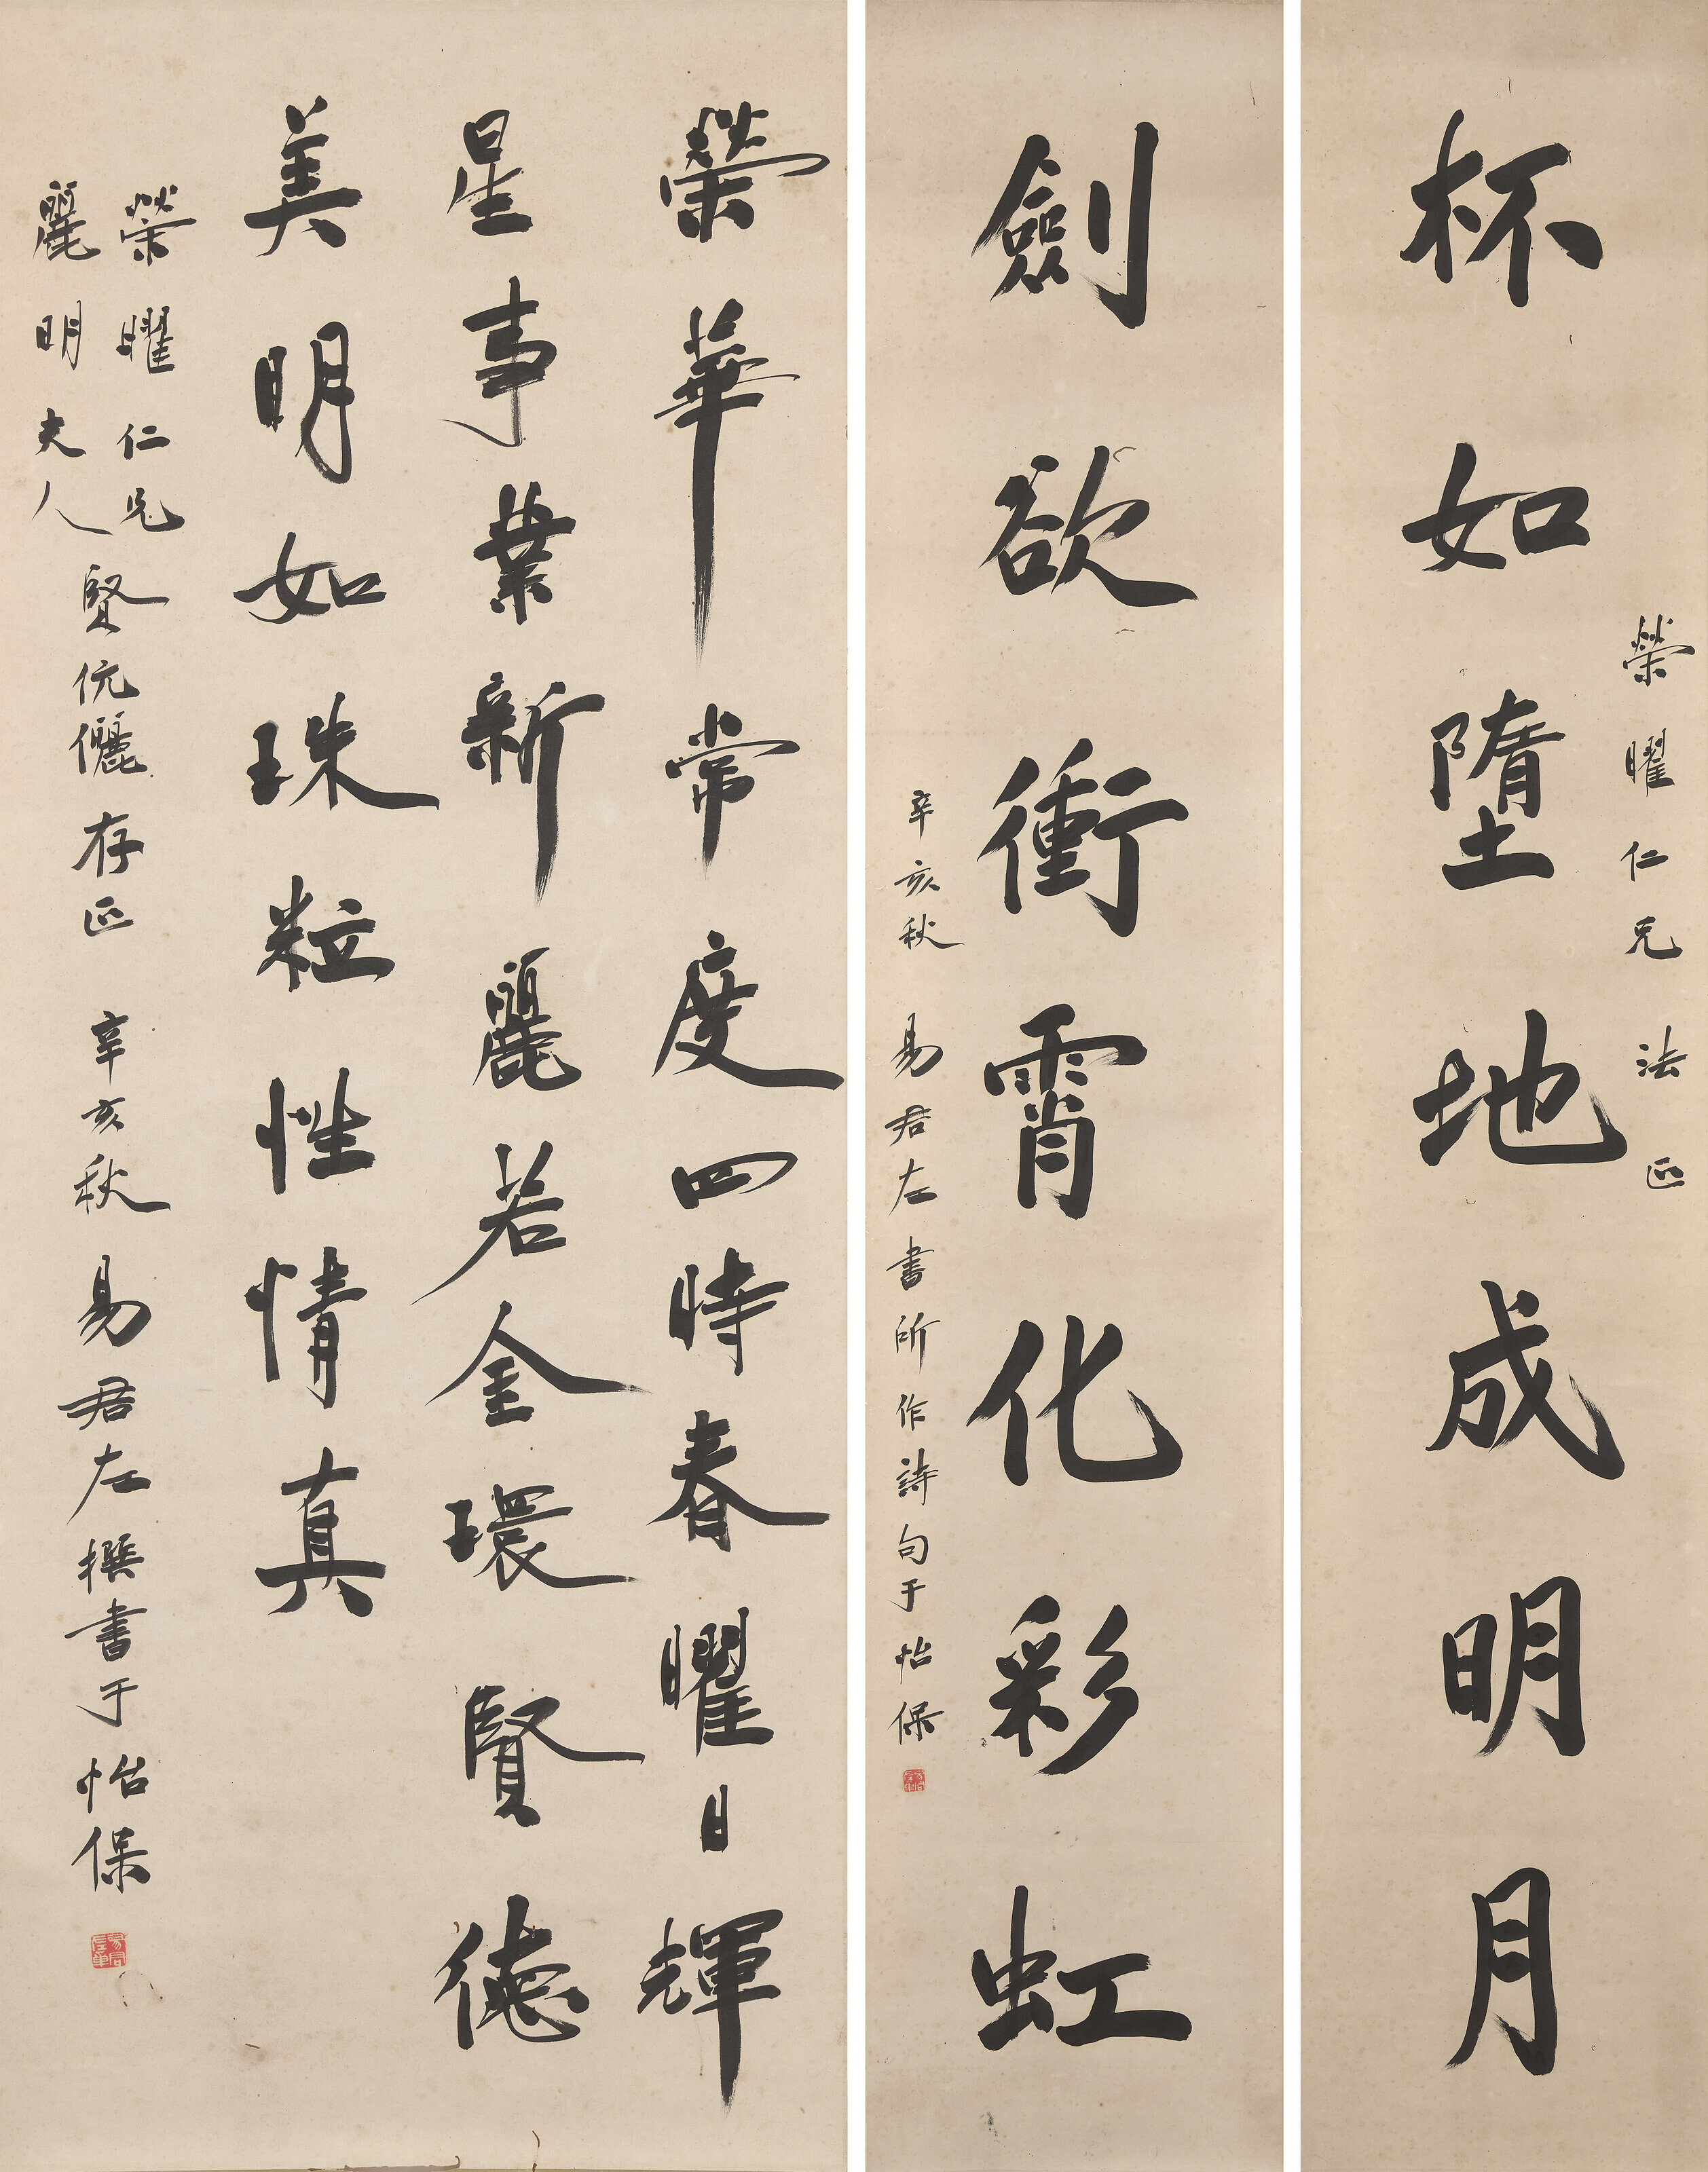 榮曜仁兄 法正
杯如墮地成明月
劍欲衝霄化彩虹
辛亥秋 易君左書所作詩句于怡保
榮華常度四時春曜日輝
星事業新麗若金環賢德
美明如珠粒性情真
榮曜仁兄
麗明夫人
賢伉儷存正 辛亥秋 易君左撰書于怡保